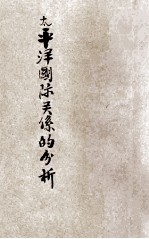 太平洋國际关係的分析